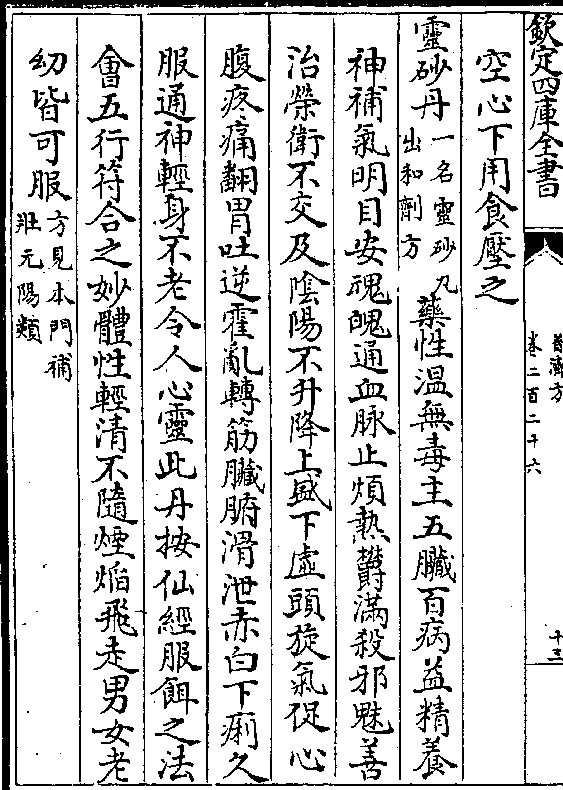 欽定四庫全書
普濟方
卷二百二十六
十三
空心下用食壓之
靈砂丹一名靈砂丸出和劑方藥性溫無毒主五臟百病益精養
神補氣明目安魂魄通血脉止煩熱欝滿殺邪魅善
治榮衛不交及陰陽不升降上盛下虛頭旋氣促心
腹疼痛翻胃吐逆霍亂轉筋臟腑滑泄赤白下痢久
服通神輕身不老令人心靈此丹按仙經服餌之法
會五行符合之妙體性輕清不隨煙焰飛走男女老
幼皆可服方見本門補壯元陽類